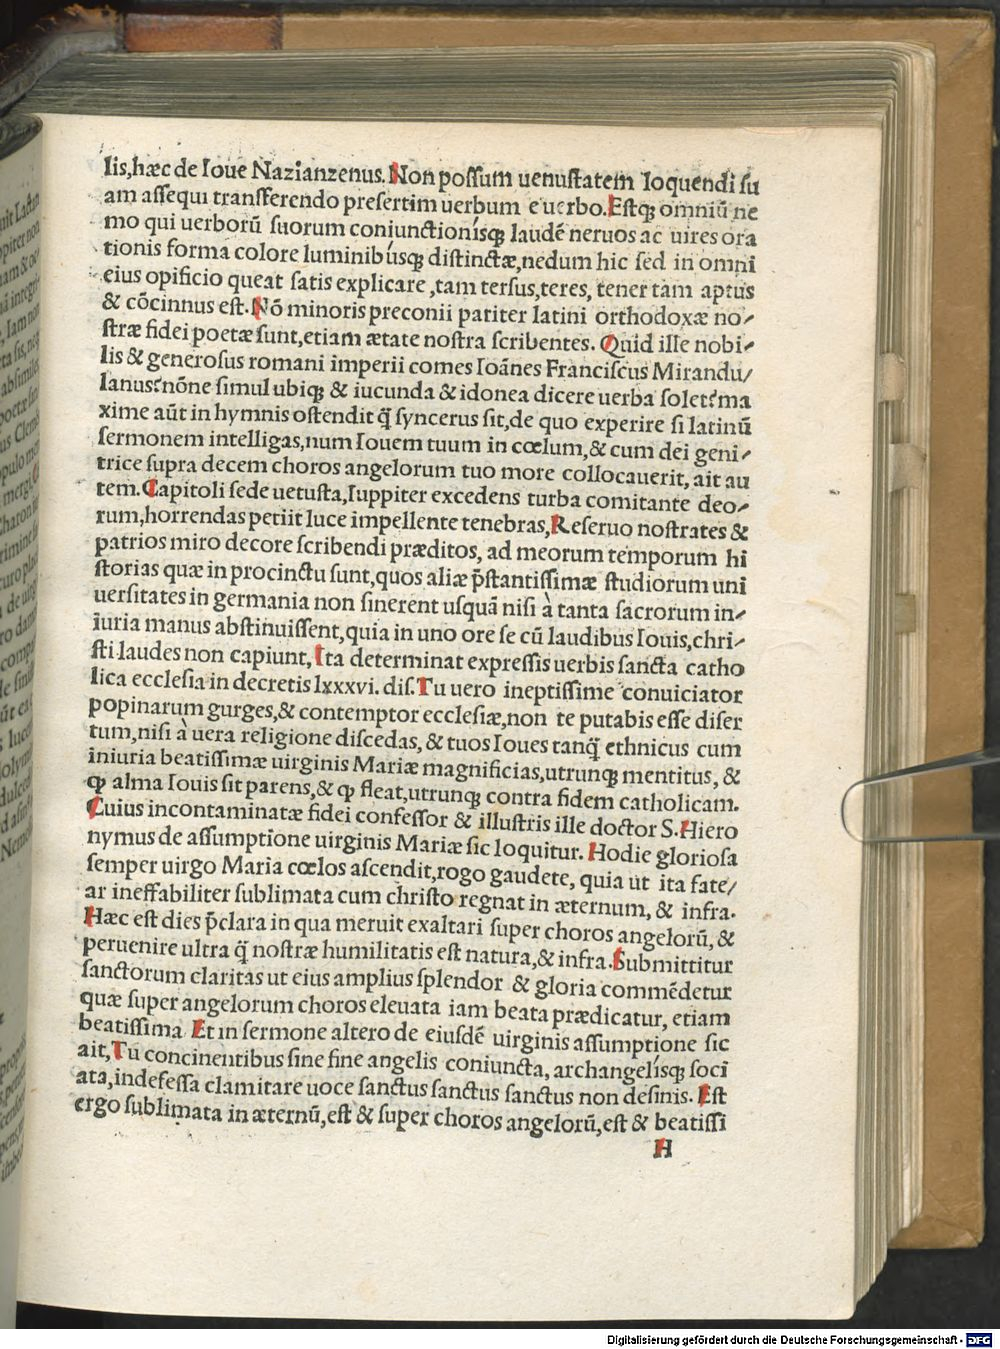 lis,hæc de Ioue Nazianzenus.Non possum uenustatem loquendi su
am assequi transferendo presertim uerbum e uerbo.Estq; omniū ne
mo qui uerborū suorum coniunctionísq; laudē neruos ac uires ora
tionis forma colore luminibúsq; distinctæ,nedum hic sed in omni
eius opificio queat satis explicare ,tam tersus,teres, tener tam aptus
& cōcinnus est.Nō minoris preconii pariter latini orthodoxæ no/
stræ fidei poetæ sunt,etiam ætate nostra scribentes. Quid ille nobi/
lis & generosus romani imperii comes Ioānes Franciscus Mirandu/
lanus?nōne simul ubiq; & iucunda & idonea dicere uerba solet?ma
xime aūt in hymnis ostendit q̄ syncerus sit,de quo experire si latinū
sermonem intelligas,num Iouem tuum in cœlum,& cum dei geni/
trice supra decem choros angelorum tuo more collocauerit, ait au
tem.Capitoli sede uetusta,Iuppiter excedens turba comitante deo/
rum,horrendas petiit luce impellente tenebras,Reseruo nostrates &
patrios miro decore scribendi præditos, ad meorum temporum hi
storias quæ in procinctu sunt,quos aliæ p̄stantissimæ studiorum uni
uersitates in germania non sinerent usquā nisi à tanta sacrorum in/
iuria manus abstinuissent,quia in uno ore se cū laudibus Iouis,chri/
sti laudes non capiunt,Ita determinat expressis uerbis sancta catho
lica ecclesia in decretis lxxxvi. dis.Tu uero ineptissime conuiciator
popinarum gurges,& contemptor ecclesiæ,non te putabis esse diser
tum,nisi à uera religione discedas, & tuos Ioues tanq̄ ethnicus cum
iniuria beatissimæ uirginis Mariæ magnificias,utrunq; mentitus, &
ꝙ alma Iouis sit parens,& ꝙ fleat,utrunq; contra fidem catholicam.
Cuius incontaminatæ fidei confessor & illustris ille doctor S.Hiero
nymus de assumptione uirginis Mariæ sic loquitur. Hodie gloriosa
semper uirgo Maria cœlos ascendit,rogo gaudete, quia ut ita fate/
ar ineffabiliter sublimata cum christo regnat in æternum, & infra.
Hæc est dies p̄clara in qua meruit exaltari super choros angelorū, &
peruenire ultra q̄ nostræ humilitatis est natura,& infra.Submittitur
sanctorum claritas ut eius amplius splendor & gloria commēdetur
quæ super angelorum choros eleuata iam beata prædicatur, etiam
beatissima Et in sermone altero de eiusdē uirginis assumptione sic
ait,Tu concinentibus sine fine angelis coniuncta, archangelísq; soci
ata,indefessa clamitare uoce sanctus sanctus sanctus non desinis. Est
ergo sublimata in æternū,est & super choros angelorū,est & beatissi
H
Digitalisierung gefördert durch die Deutsche Forschungsgemeinschaft - DFG